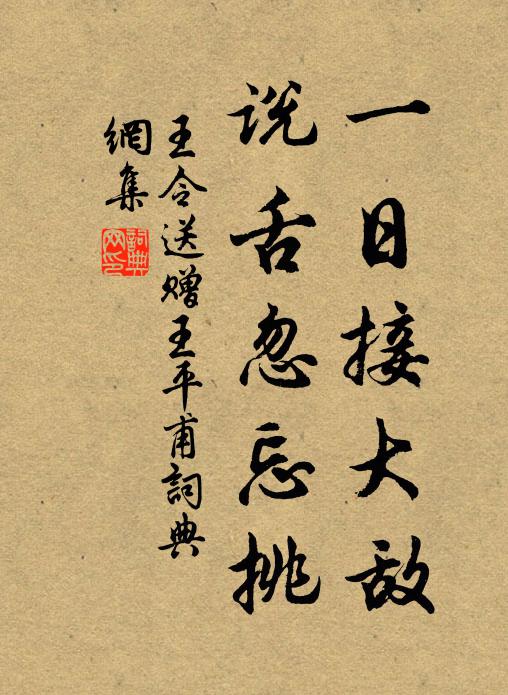 一日接大敌
说舌忽忘挑
王令送赠王平甫詞典
網集
詞典網印